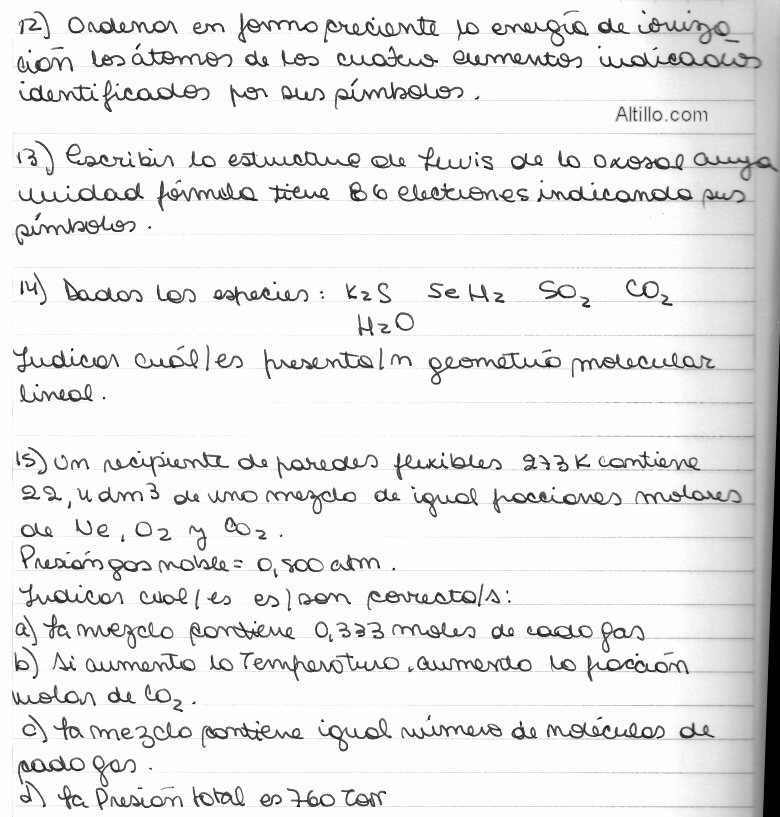 12) Ordenar en forma creciente la energía de ioniza_
ción los átomos de los cuatro elementos indicados
identificados por sus símbolos.
Altillo.com
13) Escribir la estructura de Lewis de la oxosal cuya
unidad fórmula tiene 86 electrones indicando sus
símbolos.
14) Dados las especies: K2S SeH2 SO2 CO2
H2O
Indicar cuál/es presenta/n geometría molecular
lineal.
15) Un recipiente de paredes flexibles 273 K contiene
22,4 dm3 de una mezcla de igual fracciones molares
de Ne, O2 y CO2.
Presión gas noble = 0,500 atm.
Indicar cual/es es/son correcta/s:
a) La mezcla contiene 0,333 moles de cada gas
b) Si aumenta la Temperatura, aumenta la fracción
molar de CO2.
c) La mezcla contiene igual número de moléculas de
cada gas.
d) La Presión total es 760 Torr